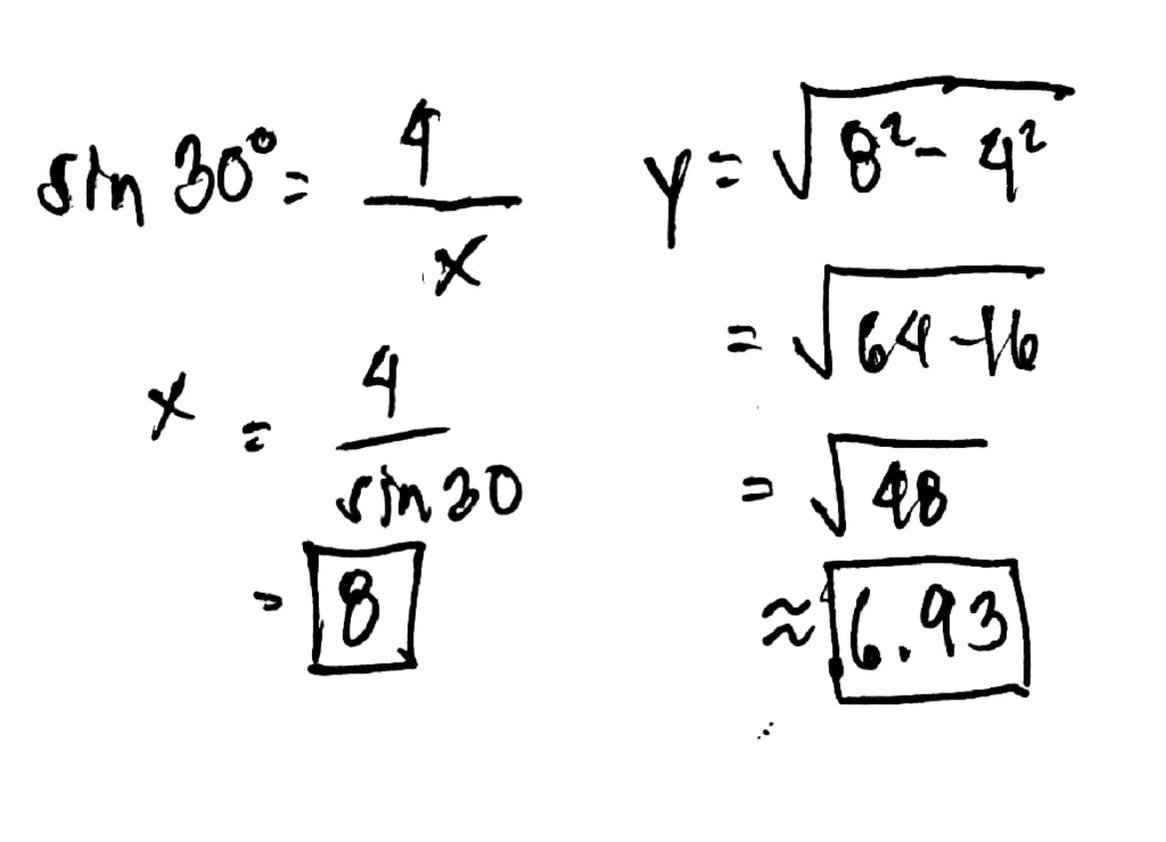 sin 30° = 4/x
x = 4/sin 30
= 8
y = √(8² - 4²)
= √(64 - 16)
= √48
≈ 6.93